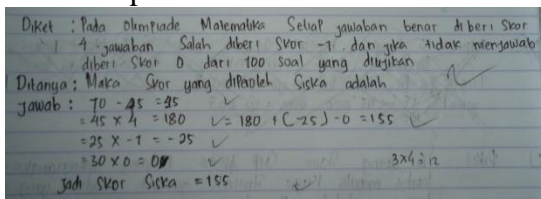 Diket : Pada Olimpiade Matematika Setiap jawaban benar diberi Skor
4 jawaban Salah diberi Skor -1 dan jika tidak menjawab
diberi Skor 0 dari 100 soal yang diujikan
Ditanya : Maka Skor yang diperoleh Siska adalah
Jawab : 70 - 45 = 25
= 45 x 4 = 180 = 180 + (-25) - 0 = 155
= 25 x -1 = -25
= 30 x 0 = 0
3x4 = 12
Jadi Skor Siska = 155